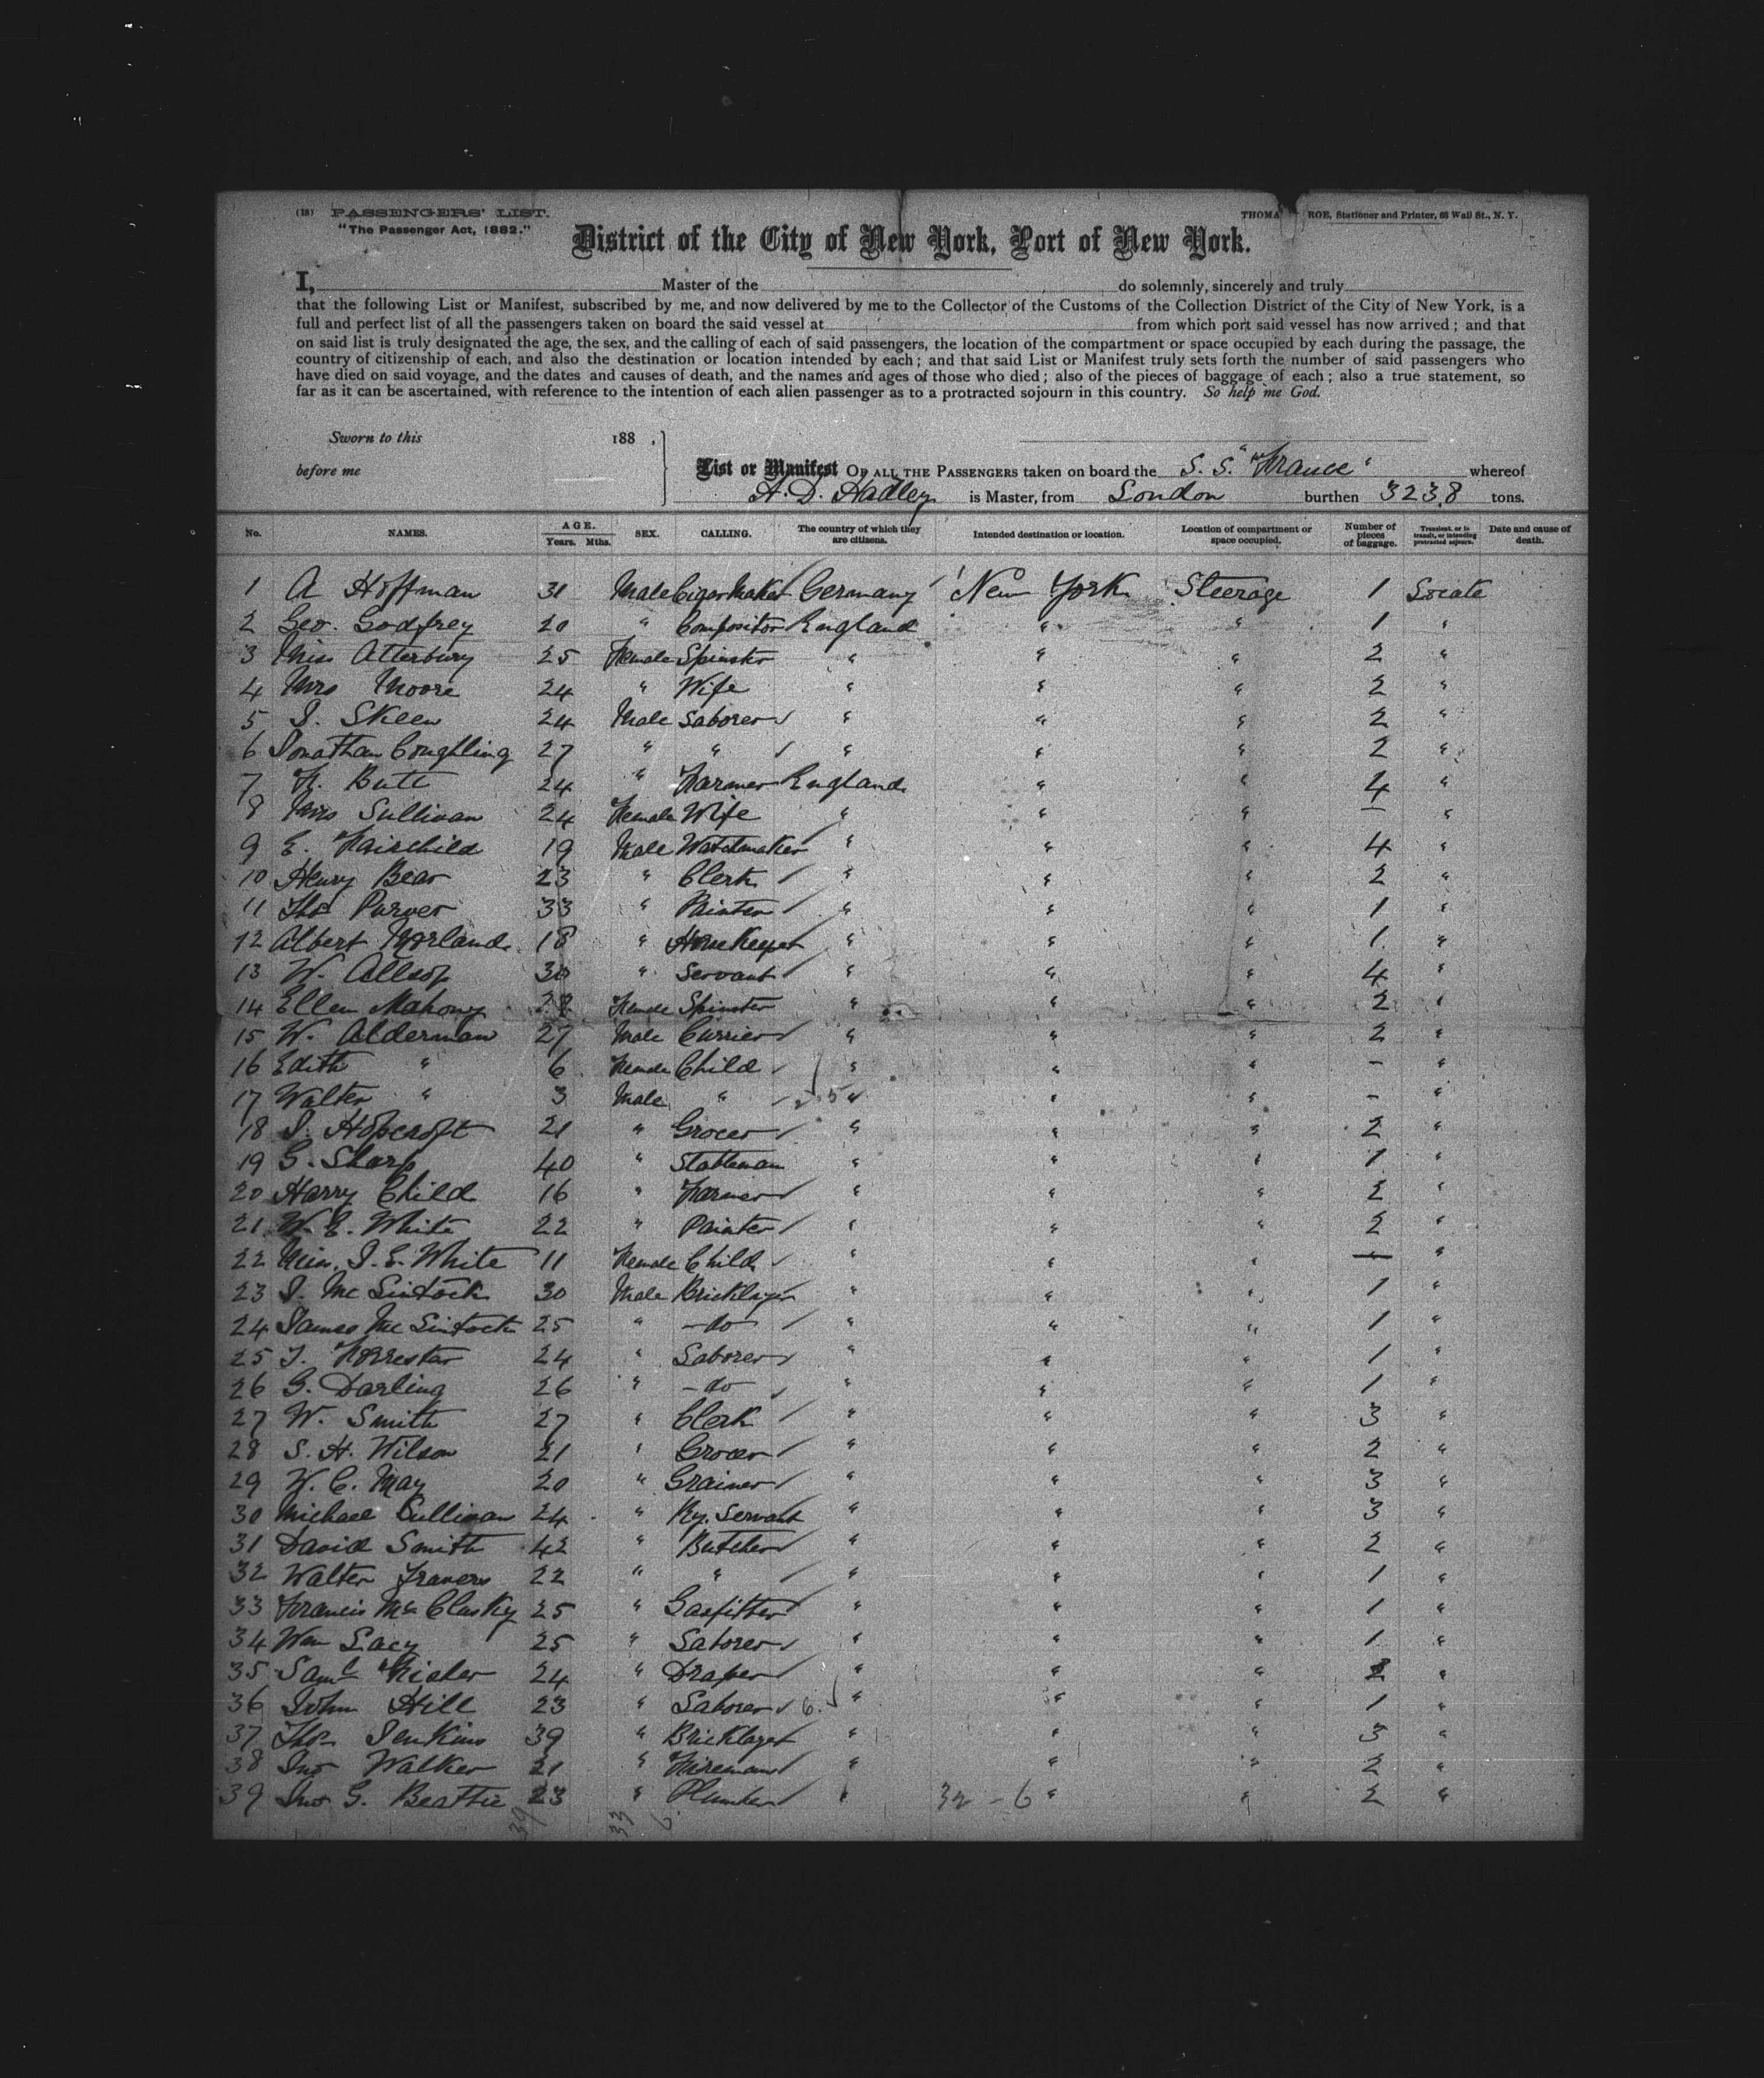 (18) PASSENGERS' LIST.
"The Passenger Act, 1882."
THOMA ROE, Stationer and Printer, 63 Wall St., N. Y.
District of the City of New York, Port of New York.
I, Master of the do solemnly, sincerely and truly
that the following List or Manifest, subscribed by me, and now delivered by me to the Collector of the Customs of the Collection District of the City of New York, is a
full and perfect list of all the passengers taken on board the said vessel at from which port said vessel has now arrived; and that
on said list is truly designated the age, the sex, and the calling of each of said passengers, the location of the compartment or space occupied by each during the passage, the
country of citizenship of each, and also the destination or location intended by each; and that said List or Manifest truly sets forth the number of said passengers who
have died on said voyage, and the dates and causes of death, and the names and ages of those who died; also of the pieces of baggage of each; also a true statement, so
far as it can be ascertained, with reference to the intention of each alien passenger as to a protracted sojourn in this country. So help me God.
Sworn to this 188 .
before me
List or Manifest OF ALL THE PASSENGERS taken on board the S. S. "France" whereof
A. D. Hadley is Master, from London burthen 3238 tons.
No. NAMES. AGE. Years. Mths. SEX. CALLING. The country of which they are citizens. Intended destination or location. Location of compartment or space occupied. Number of pieces of baggage. Transient, or in transit, or intending protracted sojourn. Date and cause of death.
1 A Hoffman 31 Male Cigar Maker Germany New York Steerage 1
2 Geo. Godfrey 20 " Compositor England " " 1 "
3 Miss Atterbury 25 Female Spinster " " " 2 "
4 Mrs Moore 24 " Wife " " " 2 "
5 J. Skeen 24 Male Laborer " " " 2 "
6 Jonathan Coughling 27 " " " " " 2 "
7 F. Butt 24 " Farmer England " " 4 "
8 Mrs Sullivan 24 Female Wife " " " – "
9 E. Fairchild 19 Male Watchmaker " " " 4 "
10 Henry Bear 23 " Clerk " " " 2 "
11 Thos Purver 33 " Painter " " " 1 "
12 Albert Morland 18 " " " " 1 "
13 W. Allsop 30 " Servant " " " 4 "
14 Ellen Mahony 28 Female Spinster " " " 2 "
15 W. Alderman 27 Male Currier " " " 2 "
16 Edith " 6 Female Child " " " – "
17 Walter " 3 Male " " " " – "
18 J. Hopcroft 21 " Grocer " " " 2 "
19 G. Sharp 40 " Stableman " " " 1 "
20 Harry Child 16 " Farmer " " " 2 "
21 W. E. White 22 " Painter " " " 2 "
22 Miss. J. E. White 11 Female Child " " " – "
23 J. Mc Lintock 30 Male Bricklayer " " " 1 "
24 James Mc Lintock 25 " – do " " " 1 "
25 T. Forrestar 24 " Laborer " " " 1 "
26 G. Darling 26 " – do " " " 1 "
27 W. Smith 27 " Clerk " " " 3 "
28 S. H. Wilson 21 " Grocer " " " 2 "
29 W. C. May 20 " Grainer " " " 3 "
30 Michael Sullivan 24 " Ry. Servant " " " 3 "
31 David Smith 42 " Butcher " " " 2 "
32 Walter Travers 22 " " " " " 1 "
33 Francis Mc Clusky 25 " Gasfitter " " " 1 "
34 Wm Lacy 25 " Laborer " " " 1 "
35 Saml 24 " Draper " " " 2 "
36 John Hill 23 " Laborer 6 " " " 1 "
37 Thos Jenkins 39 " Bricklayer " " " 3 "
38 Jno Walker 21 " Fireman " " " 2 "
39 Jno G. Beattie 23 " Plumber " 32 – 6 " " 2 "
39 33 6